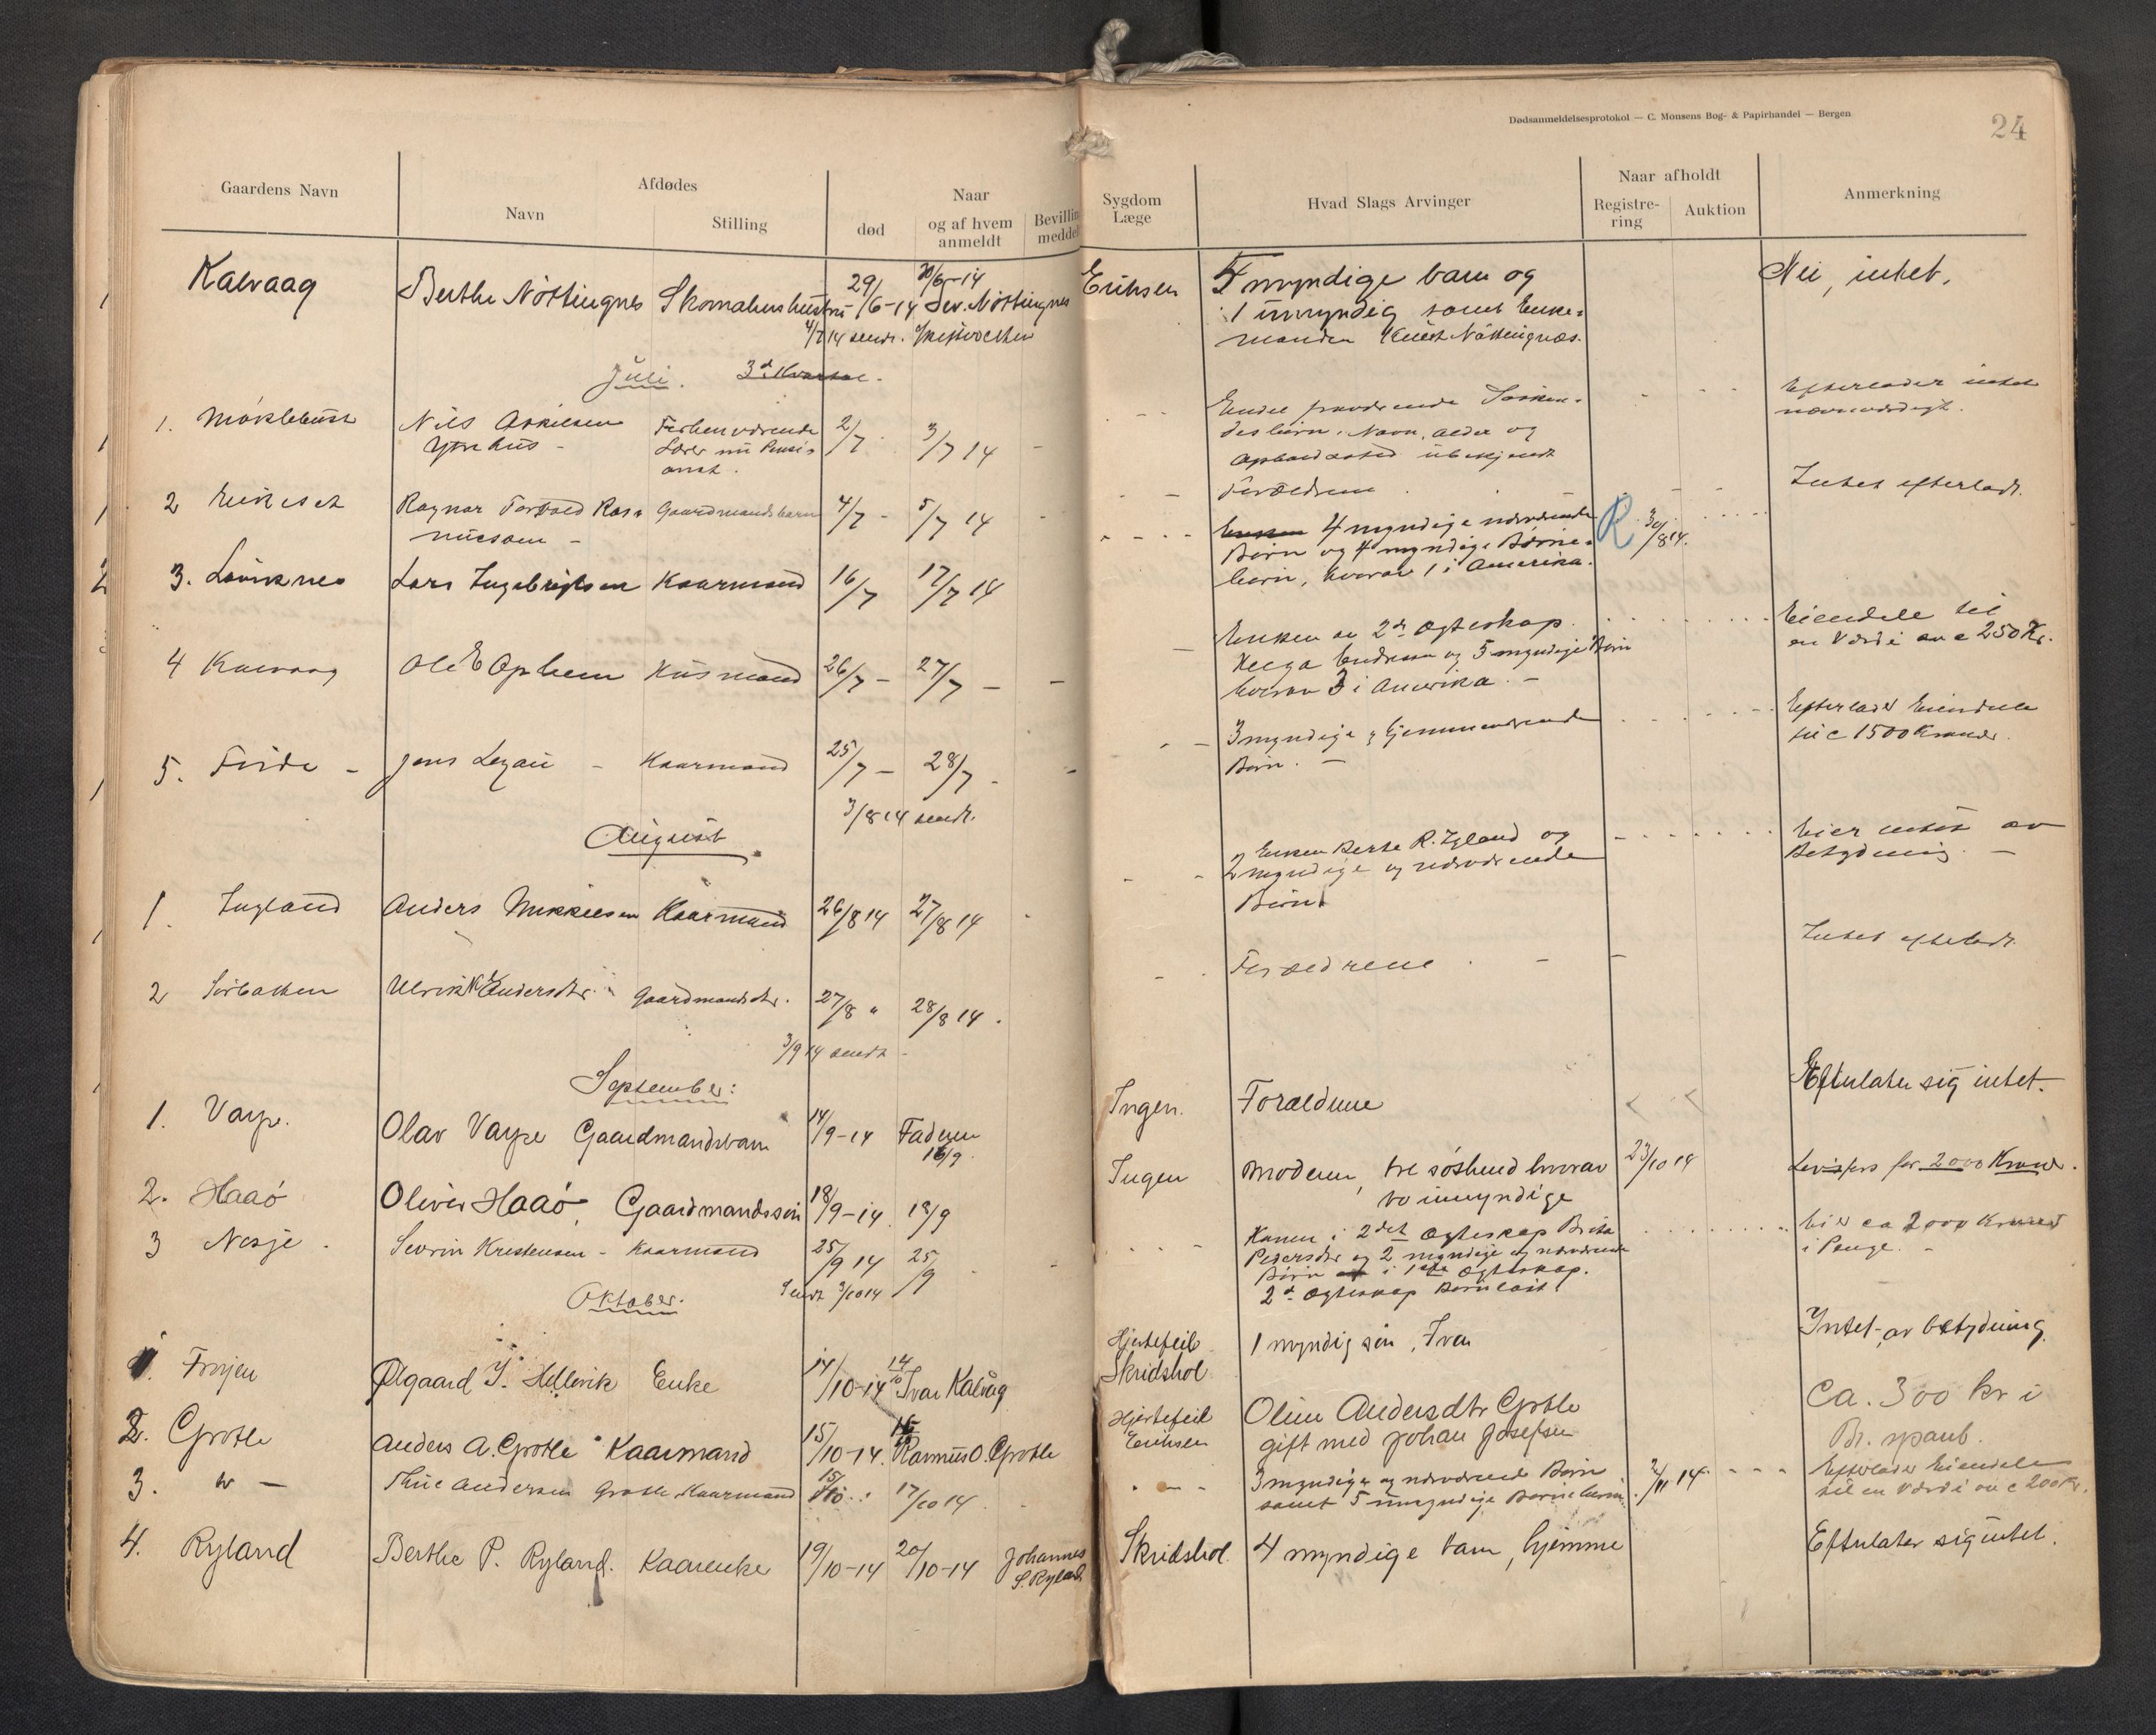 Dødsanmeldelsesprotokol — C. Monsens Bog- & Papirhandel — Bergen
24
Gaardens Navn
Afdødes
Navn
Stilling
Naar
død
og af hvem
anmeldt
Bevillin
meddel
Sygdom
Læge
Hvad Slags Arvinger
Naar afholdt
Registre-
ring
Auktion
Anmerkning
Kalvaag Berthe Nøttingnes Skomakerhustru 29/6-14 30/6-14 Sev. Nøttingnes
4/7 14 sendt.
Eriksen
myndige barn og
1 umyndig samt Enke-
manden Knut Nøttingnæs.
Nei, intet.
Juli. 3d Kvartal.
1. Møklebust Nils Askilsen Forhenværende 2/7 3/7 14
Ytrehus - Lærer nu Pensi-
onist.
Endel fraværende Søsken-
des børn. Navn, Alder og
Opholdssted ubekjendt
Efterlader intet
nævneværdigt.
2 Eikeset Ragnar Torvald Ras- Gaardmandsbarn 4/7 - 5/7 14
mussen -
Forældrene
Intet efterladt.
3. Løviknes Lars Ingebrigtsen Kaarmand 16/7 17/7 14
Enken 4 myndige nærværende
Børn og 4 myndige Børne-
børn, hvorav 1 i Amerika.
R. 30/8 14.
4 Kalvaag Ole E Ophem Husmand 26/7 - 27/7 -
Enken av 2d Ægteskap
Helga Endresen og 5 myndige Børn
hvorav 3 i Amerika. -
Eiendele til
en Værdi av c 250 Kr.
5. Førde - Jens Legau - Kaarmand 25/7 - 28/7 -
3/8 14 sendt.
3 myndige, hjemmeværende
Børn. -
Efterlader Eiendele
til c 1500 Kroner.
August
1. Ingland Anders Mikkelsen Kaarmand 26/8 14 27/8 14
Enken Berte R. Igland og
2 myndige og nærværende
Børn
Eier intet av
Betydning. -
2 Sørbotten Ulrikke Endersdtr. Gaardmandsdtr. 27/8 " 28/8 14.
3/9 14 sendt -
Forældrene
Intet efterladt.
September:
1. Varpe. Olav Varpe Gaardmandsbarn 14/9-14 Faderen
16/9.
Ingen. Forældrene
Efterlater sig intet.
2. Haaø Oliver Haaø, Gaardmandssøn 18/9-14 18/9
Ingen Moderen, tre søskend hvorav
to umyndige
23/10 14
Livsfors for 2000 Kroner.
3 Nesje. Sevrin Kristensen - Kaarmand 25/9 14 25/9
Sendt 3/10 14
Konen i 2det Ægteskap Brita
Pedersdtr og 2 myndige og nærværende
Børn i 1ste Ægteskap.
2d Ægteskap Barnløst.
Eier ca 2000 Kroner
i Penge. -
Oktober.
1. Frøjen Ølgaard I. Hellevik Enke 14/10-14 14/10 Ivar Kalvåg
Hjertefeil
Skridshol
1 myndig søn, Ivar
Intet av betydning.
2. Grotle Anders A. Grotle Kaarmand 15/10-14. Rasmus O. Grotle
Hjertefeil
Eriksen
Oline Andersdtr Grotle
gift med Johan Josefsen
Ca. 300 kr i
Br. spanb.
3. " - Thue Andersen Grotle, Kaarmand 15/10 17/10 14
3 myndige og nærværende Børn
samt 5 umyndige Børnebørn
2/11 14.
Efterlader Eiendele
til en Værdi av c 200 Kr.
4. Ryland Berthe P. Ryland. Kaarenke 19/10-14 20/10-14 Johannes
S. Ryland
Skridshol. 4 myndige barn, hjemme
Efterlater sig intet.